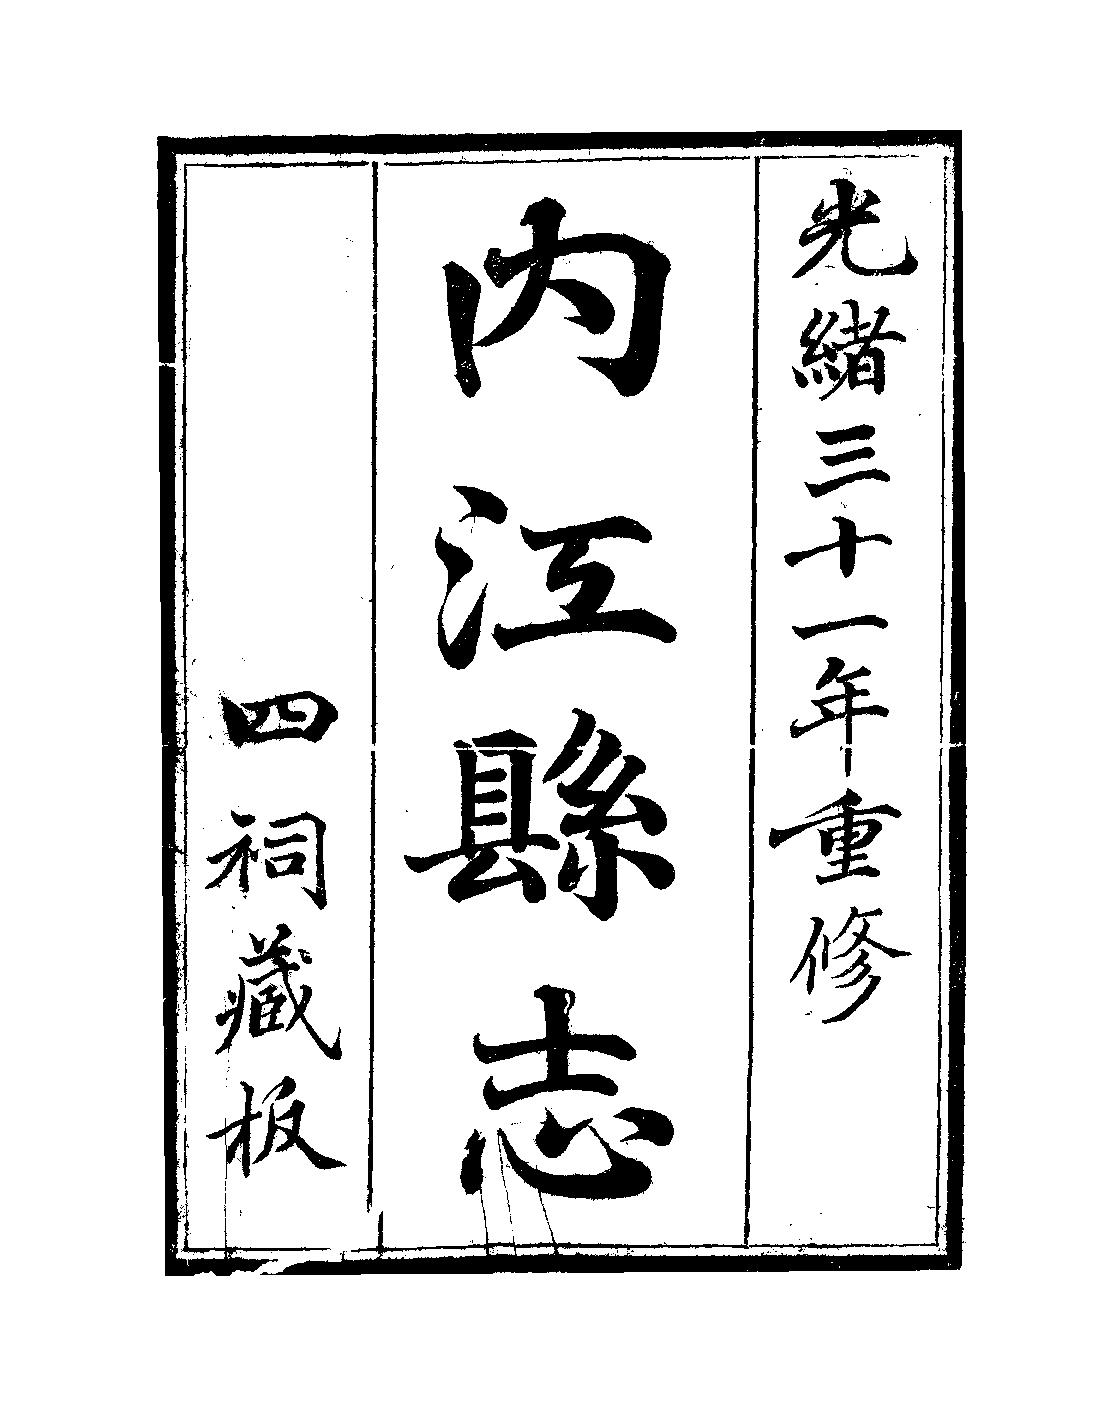 光緒三十一年重修
內江縣志
四祠藏板